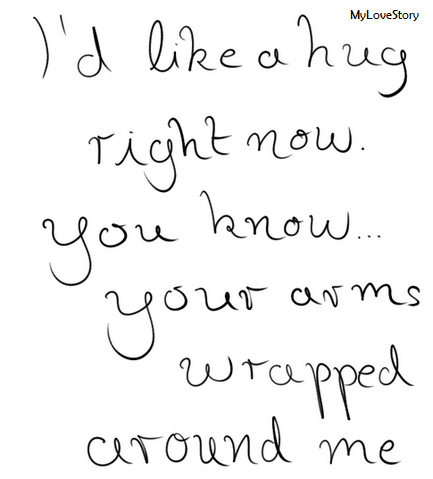 MyLoveStory
I'd like a hug
right now.
you know...
your arms
wrapped
around me